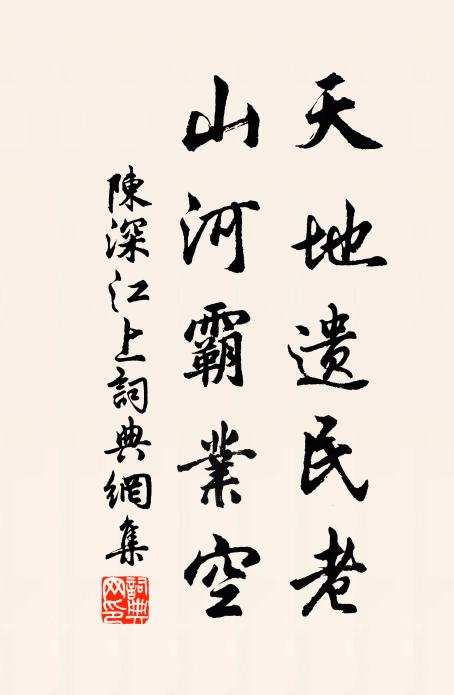 天地遺民老
山河霸業空
陳深江上詞典網集
詞典網印